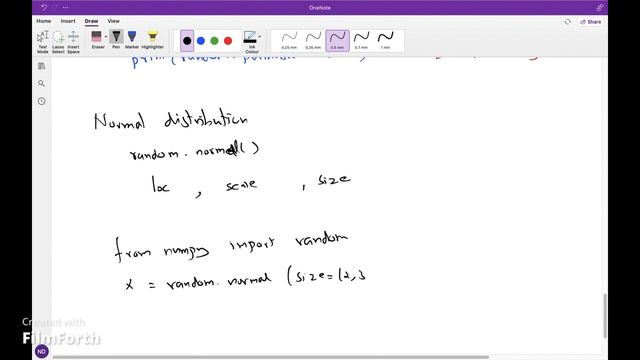 OneNote
Home Insert Draw View
Text Mode Lasso Select Insert Space Eraser Pen Marker Highlighter Ink Colour 0.25 mm 0.35 mm 0.5 mm 0.7 mm 1 mm
Normal distribution
random.normal()
loc , scale , size
from numpy import random
x = random.normal (size=(2,3
Created with
FilmForth
ND